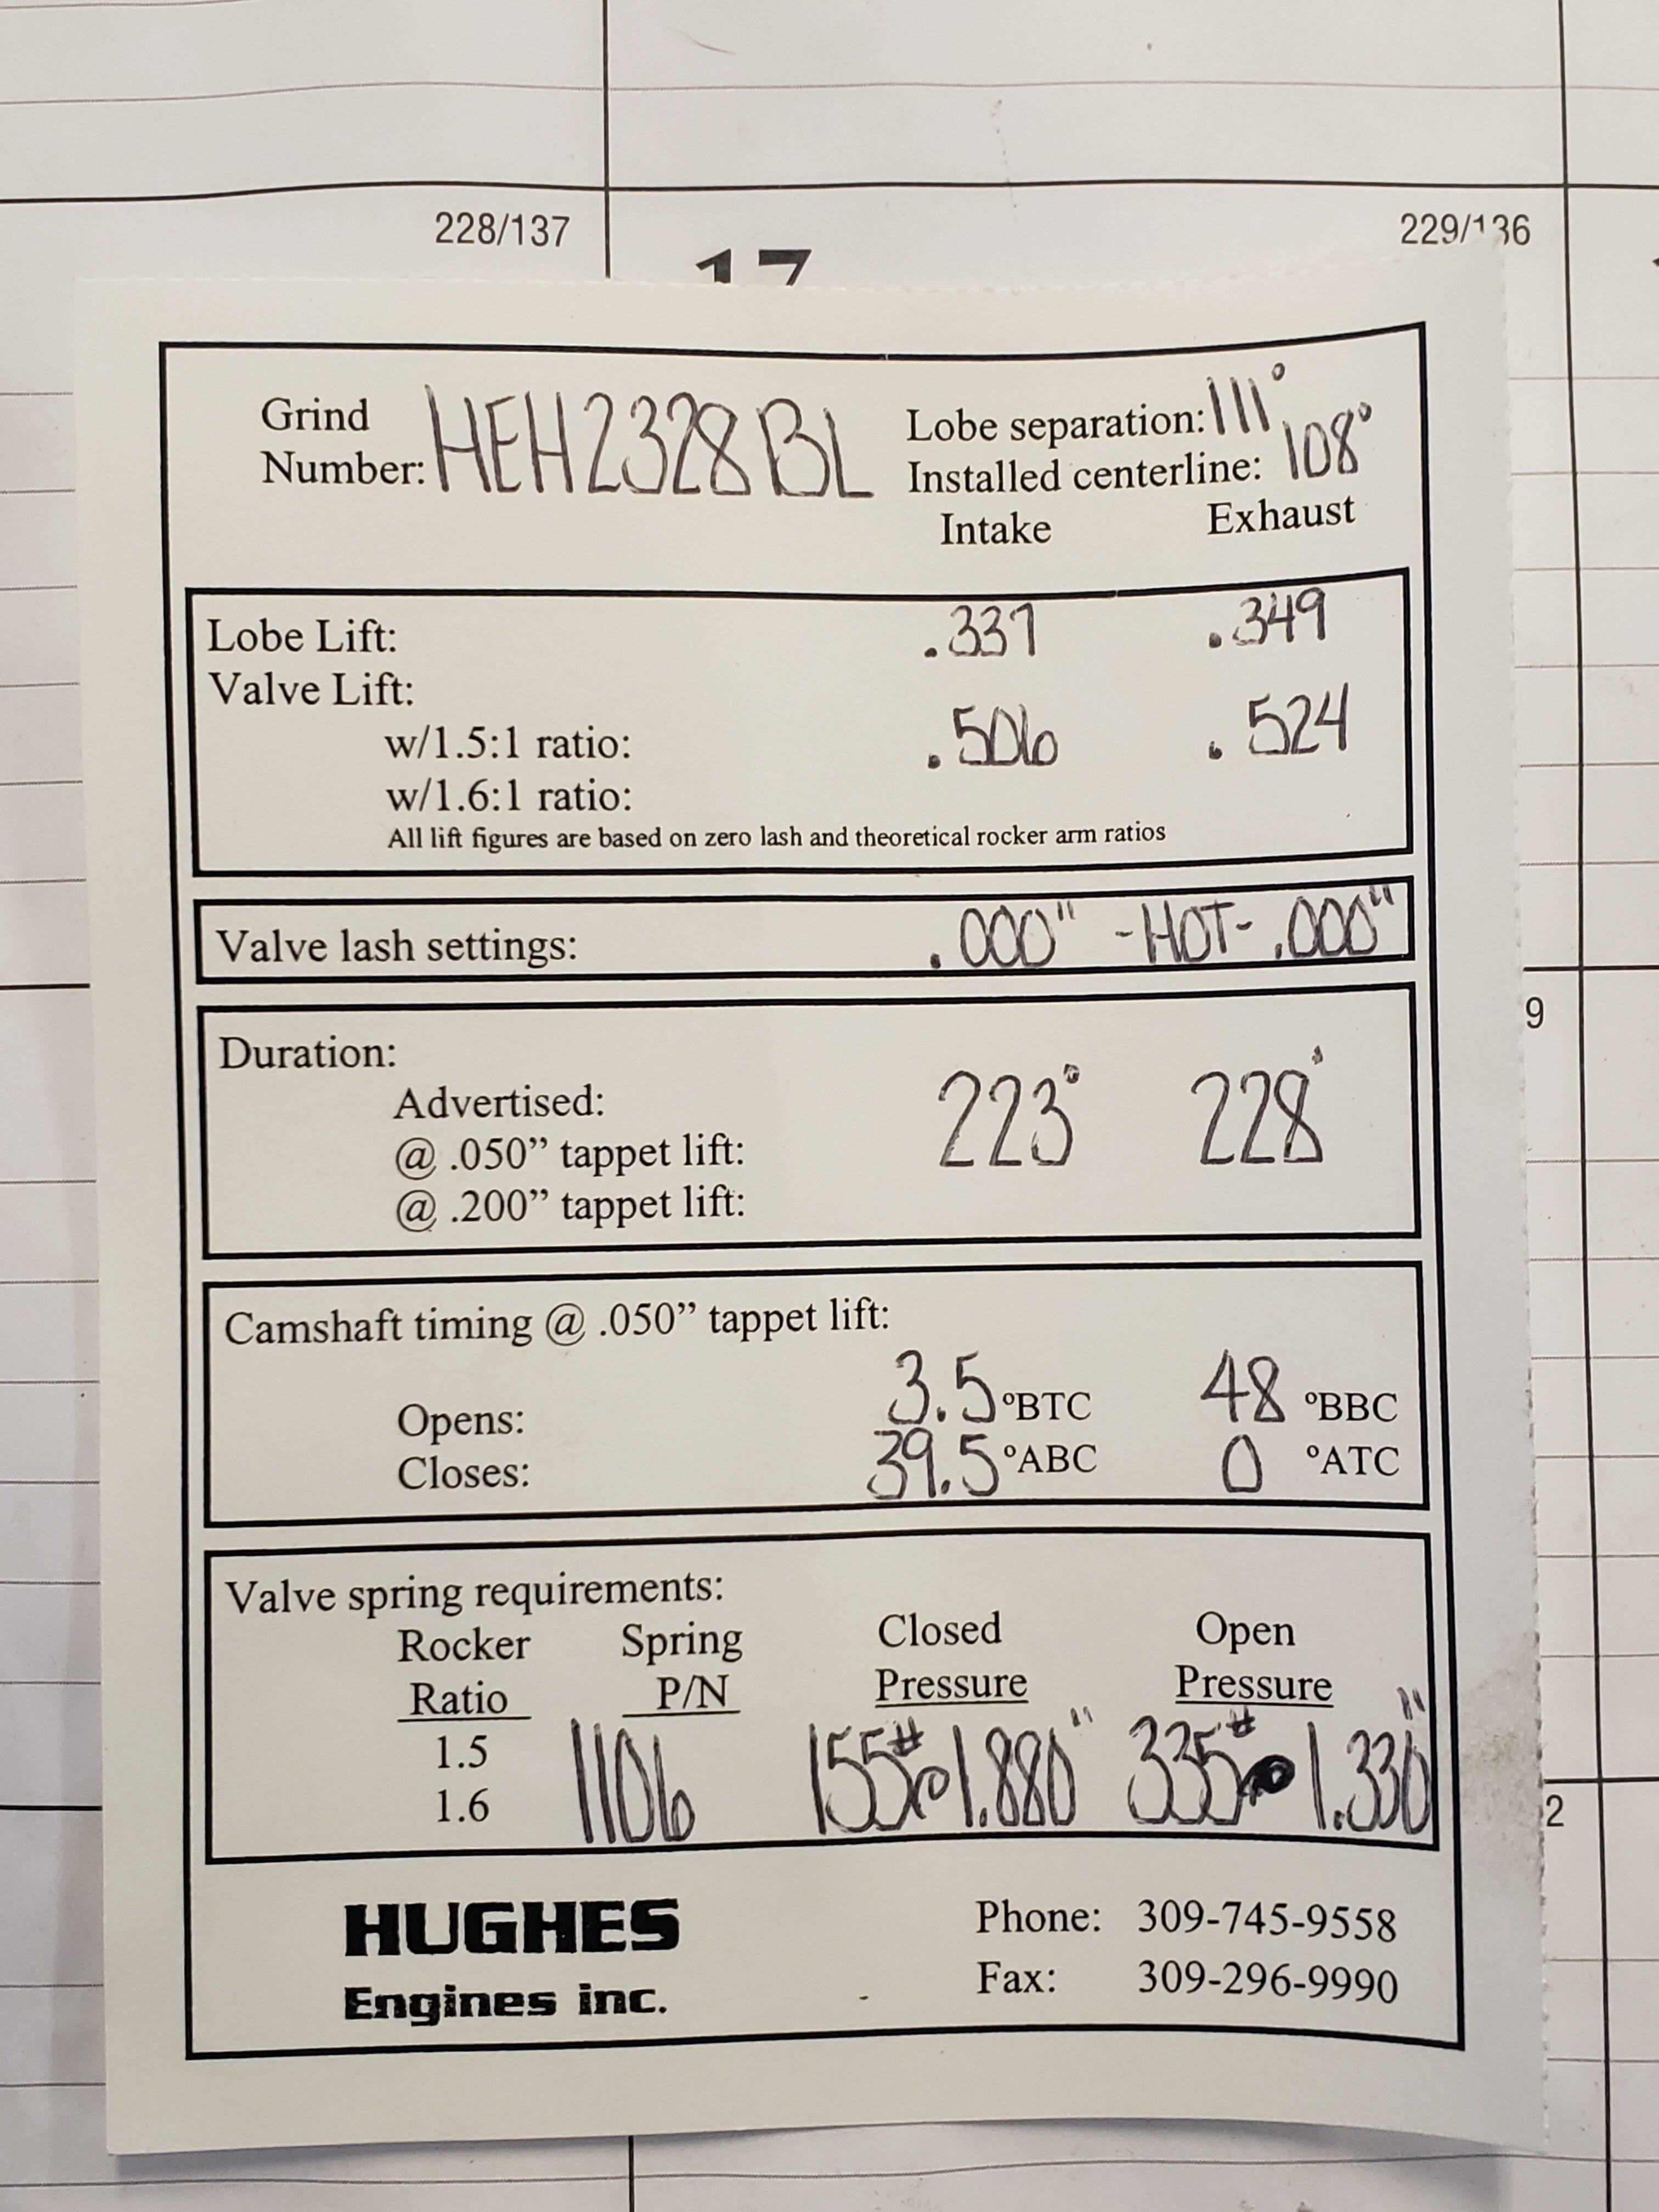 228/137
229/136
17
Grind Number: HEH2328BL
Lobe separation: 111°
Installed centerline: 108°
Intake Exhaust
Lobe Lift: .337 .349
Valve Lift:
w/1.5:1 ratio: .506 .524
w/1.6:1 ratio:
All lift figures are based on zero lash and theoretical rocker arm ratios
Valve lash settings: .000" -HOT- .000"
Duration:
Advertised:
@ .050” tappet lift: 223° 228°
@ .200” tappet lift:
Camshaft timing @ .050” tappet lift:
Opens: 3.5 °BTC 48 °BBC
Closes: 39.5 °ABC 0 °ATC
Valve spring requirements:
Rocker Ratio Spring P/N Closed Pressure Open Pressure
1.5
1.6 1106 155# @ 1.880" 335# @ 1.330"
HUGHES
Engines inc.
Phone: 309-745-9558
Fax: 309-296-9990
9
2